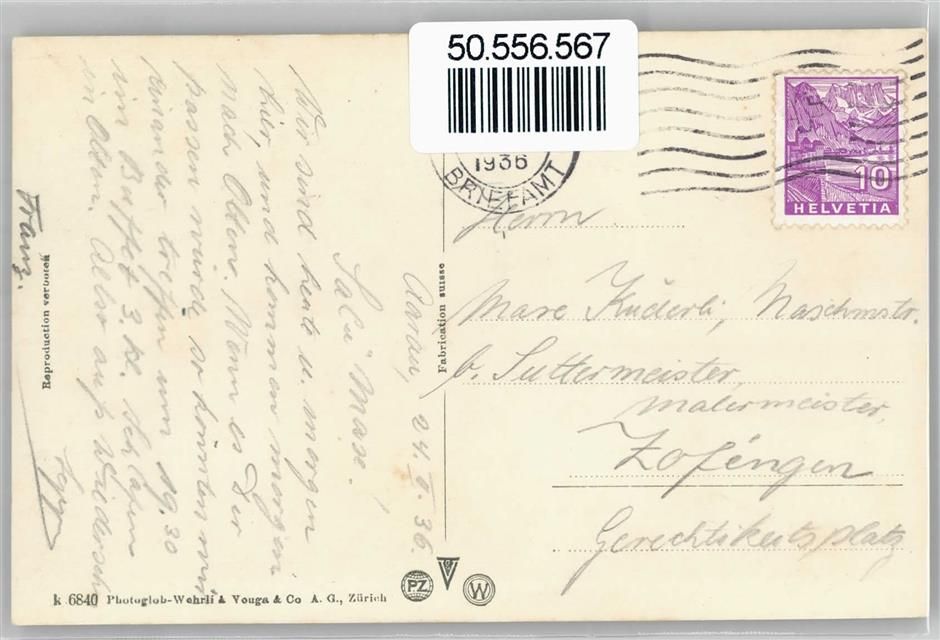 50.556.567
1936
BRIEFAMT
10
HELVETIA
Aarau, 24. 36.
Salü Max!
Wir sind heute u. morgen
hier, und kommen morgen
nach Olten. Wenn es Der
passen würde, so könnten wir
einander treffen um 19.30
im Buffet 3. Kl.
in Olten. Also auf Wiedersehn
Franz.
Herrn
Küderli,
b. Suttermeister,
Malermeister,
Zofingen
Gerechtikeitsplatz
Reproduction verboten
Fabrication suisse
k 6840 Photoglob-Wehrli & Vouga & Co A. G., Zürich
PZ
V
W